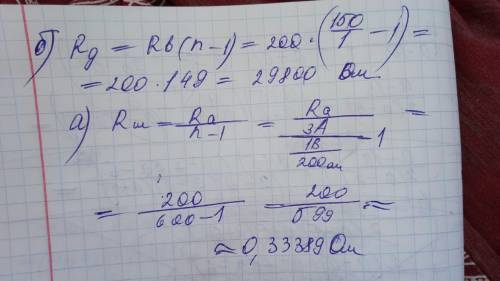 б) Rд = Rв(n-1) = 200 · (150/1 - 1) =
= 200 · 149 = 29800 Ом.
а) Rш = Ra/(n-1) = Ra/((3A)/(1В/200ом) - 1) =
= 200/(600-1) = 200/599 ≈
≈ 0,33389 Ом